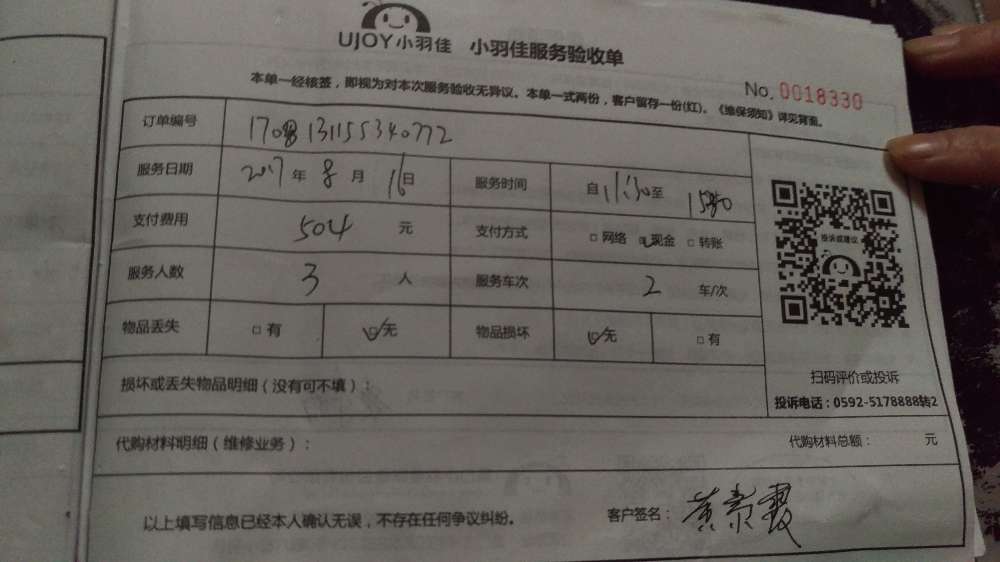 UJOY小羽佳 小羽佳服务验收单
本单一经核签，即视为对本次服务验收无异议。本单一式两份，客户留存一份(红)。《维保须知》详见背面。
No. 0018330
订单编号 1708131155340772
服务日期 2017年8月16日 服务时间 自11:30至
支付费用 504 元 支付方式 □网络 ☑现金 □转账
服务人数 3 人 服务车次 2 车/次
物品丢失 □有 ☑无 物品损坏 ☑无 □有
投诉或建议
扫码评价或投诉
投诉电话：0592-5178888转2
损坏或丢失物品明细（没有可不填）：
代购材料明细（维修业务）： 代购材料总额： 元
以上填写信息已经本人确认无误，不存在任何争议纠纷。 客户签名：黄素霞